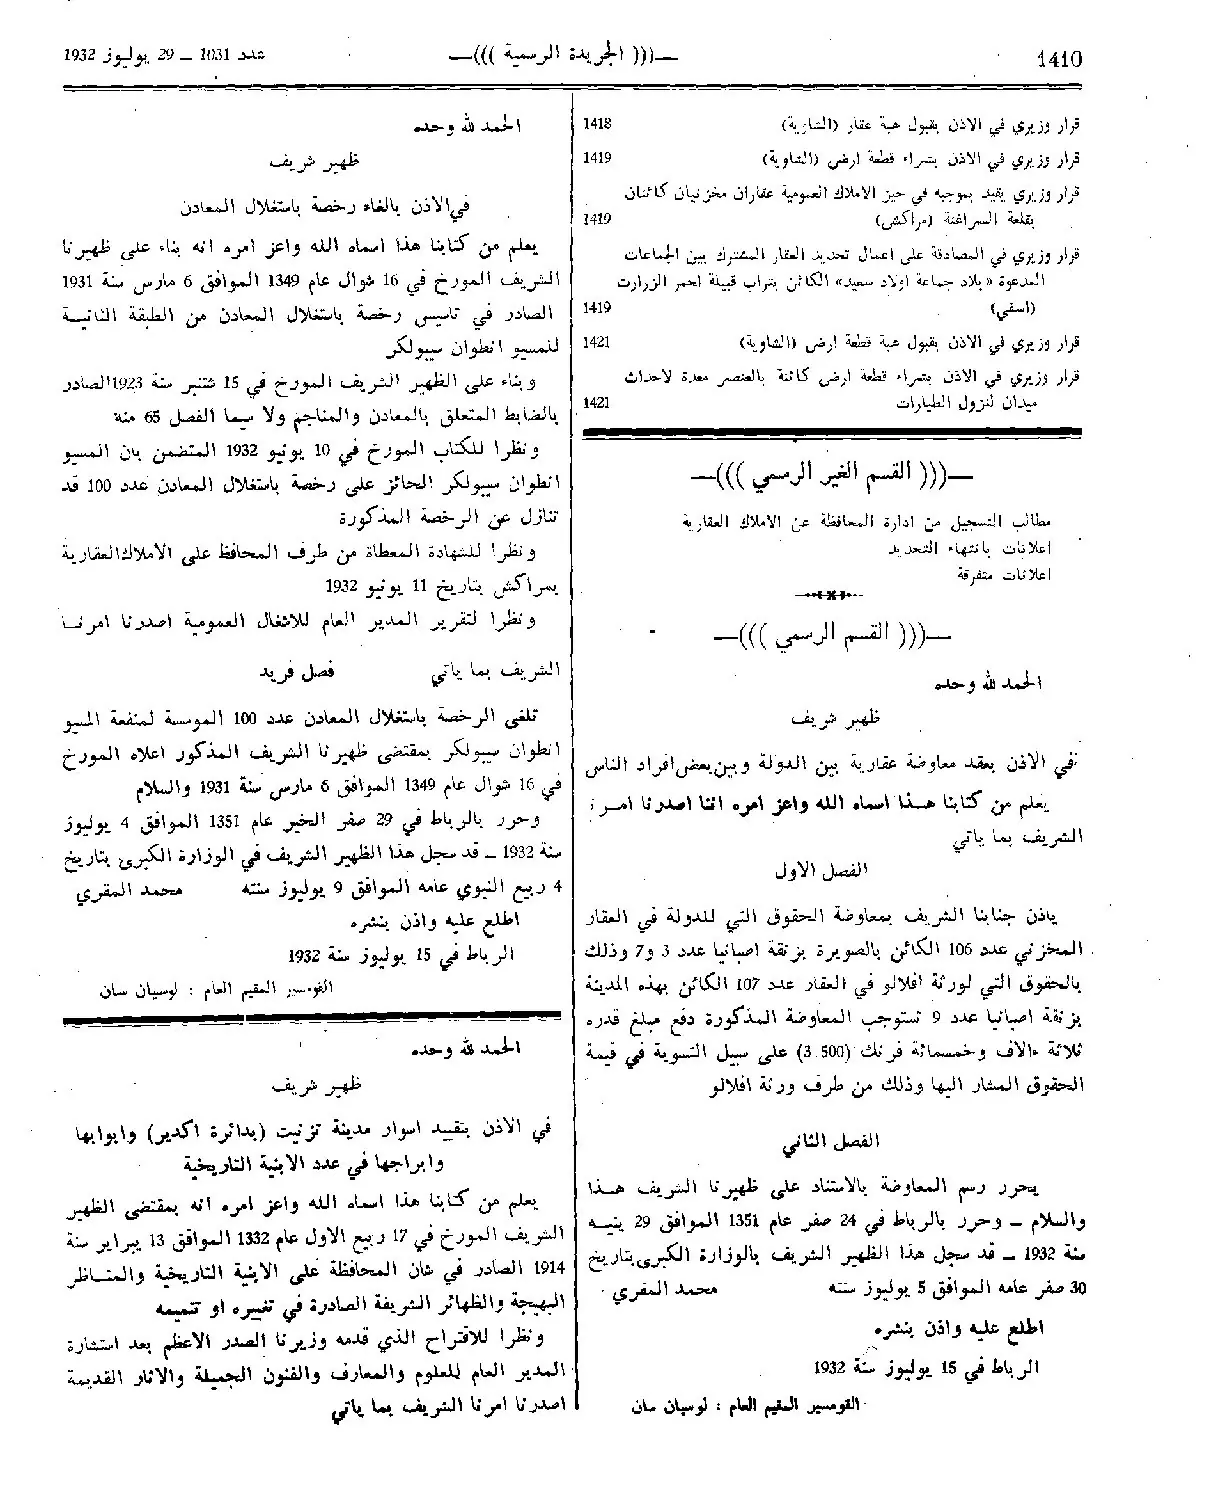 1410
—((( الجريدة الرسمية )))—
عدد 1031 — 29 يوليوز 1932
قرار وزيري في الاذن بقبول هبة عقار (الشاوية) 1418
قرار وزيري في الاذن بشراء قطعة ارض (الشاوية) 1419
قرار وزيري يقيد بموجبه في حيز الاملاك العمومية عقاران مخزنيان كائنان
بقلعة السراغنة (مراكش) 1419
قرار وزيري في المصادقة على اعمال تحديد العقار المشترك بين الجماعات
المدعوة «بلاد جماعة اولاد سعيد» الكائن بتراب قبيلة احمر الزرارت
(اسفي) 1419
قرار وزيري في الاذن بقبول هبة قطعة ارض (الشاوية) 1421
قرار وزيري في الاذن بشراء قطعة ارض كائنة بالعنصر معدة لاحداث
ميدان لنزول الطيارات 1421
—((( القسم الغير الرسمي )))—
مطالب التسجيل من ادارة المحافظة عن الاملاك العقارية
اعلانات بانتهاء التحديد
اعلانات متفرقة
—((( القسم الرسمي )))—
الحمد لله وحده
ظهير شريف
في الاذن بعقد معاوضة عقارية بين الدولة وبين بعض افراد الناس
يعلم من كتابنا هذا اسماه الله واعز امره اننا اصدرنا امرنا
الشريف بما ياتي
الفصل الاول
ياذن جنابنا الشريف بمعاوضة الحقوق التي للدولة في العقار
المخزني عدد 106 الكائن بالصويرة بزنقة اصبانيا عدد 3 و7 وذلك
بالحقوق التي لورثة افلالو في العقار عدد 107 الكائن بهذه المدينة
بزنقة اصبانيا عدد 9 تستوجب المعاوضة المذكورة دفع مبلغ قدره
ثلاثة ءالاف وخمسمائة فرنك (3.500) على سبيل التسوية في قيمة
الحقوق المشار اليها وذلك من طرف ورثة افلالو
الفصل الثاني
يحرر رسم المعاوضة بالاستناد على ظهيرنا الشريف هذا
والسلام — وحرر بالرباط في 24 صفر عام 1351 الموافق 29 ينيه
سنة 1932 — قد سجل هذا الظهير الشريف بالوزارة الكبرى بتاريخ
30 صفر عامه الموافق 5 يوليوز سنته محمد المقري
اطلع عليه واذن بنشره
الرباط في 15 يوليوز سنة 1932
القومسير المقيم العام : لوسيان سان
الحمد لله وحده
ظهير شريف
في الاذن بالغاء رخصة باستغلال المعادن
يعلم من كتابنا هذا اسماه الله واعز امره انه بناء على ظهيرنا
الشريف المورخ في 16 شوال عام 1349 الموافق 6 مارس سنة 1931
الصادر في تاسيس رخصة باستغلال المعادن من الطبقة الثانية
للمسيو انطوان سيبولكر
وبناء على الظهير الشريف المورخ في 15 شتنبر سنة 1923 الصادر
بالضابط المتعلق بالمعادن والمناجم ولا سيما الفصل 65 منه
ونظرا للكتاب المورخ في 10 يونيو 1932 المتضمن بان المسيو
انطوان سيبولكر الحائز على رخصة باستغلال المعادن عدد 100 قد
تنازل عن الرخصة المذكورة
ونظرا للشهادة المعطاة من طرف المحافظ على الاملاك العقارية
بمراكش بتاريخ 11 يونيو 1932
ونظرا لتقرير المدير العام للاشغال العمومية اصدرنا امرنا
الشريف بما ياتي فصل فريد
تلغى الرخصة باستغلال المعادن عدد 100 الموسسة لمنفعة المسيو
انطوان سيبولكر بمقتضى ظهيرنا الشريف المذكور اعلاه المورخ
في 16 شوال عام 1349 الموافق 6 مارس سنة 1931 والسلام
وحرر بالرباط في 29 صفر الخير عام 1351 الموافق 4 يوليوز
سنة 1932 — قد سجل هذا الظهير الشريف في الوزارة الكبرى بتاريخ
4 ربيع النبوي عامه الموافق 9 يوليوز سنته محمد المقري
اطلع عليه واذن بنشره
الرباط في 15 يوليوز سنة 1932
القومسير المقيم العام : لوسيان سان
الحمد لله وحده
ظهير شريف
في الاذن بتقييد اسوار مدينة تزنيت (بدائرة اكدير) وابوابها
وابراجها في عدد الابنية التاريخية
يعلم من كتابنا هذا اسماه الله واعز امره انه بمقتضى الظهير
الشريف المورخ في 17 ربيع الاول عام 1332 الموافق 13 يبراير سنة
1914 الصادر في شان المحافظة على الابنية التاريخية والمناظر
البهيجة والظهائر الشريفة الصادرة في تغييره او تتميمه
ونظرا للاقتراح الذي قدمه وزيرنا الصدر الاعظم بعد استشارة
المدير العام للعلوم والمعارف والفنون الجميلة والاثار القديمة
اصدرنا امرنا الشريف بما ياتي